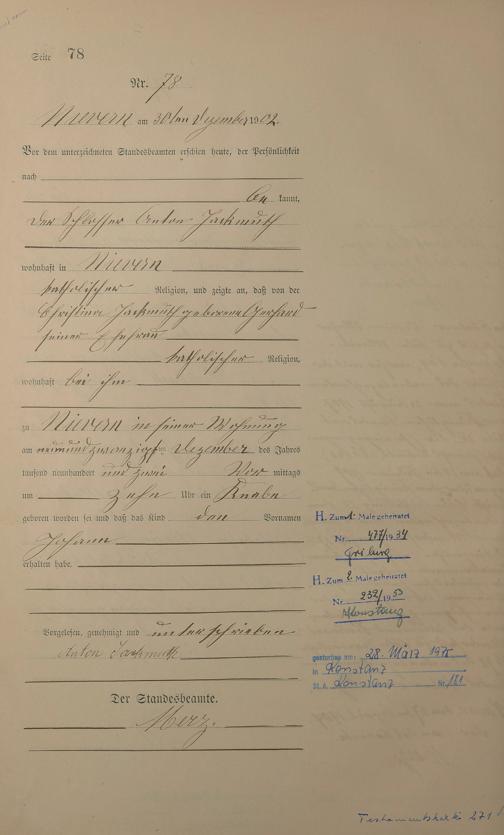 Seite 78
Nr. 78
Nievern am 30ten Dezember 1902
Vor dem unterzeichneten Standesbeamten erschien heute, der Persönlichkeit
nach
be kannt,
der Schlosser Anton Jackmuth
wohnhaft in Nievern
katholischer Religion, und zeigte an, daß von der
Christina Jackmuth geborene Gerhard
seiner Ehefrau
katholischer Religion,
wohnhaft bei ihm
zu Nievern in seiner Wohnung
am neunundzwanzigsten Dezember des Jahres
tausend neunhundert und zwei Vor mittags
um zehn Uhr ein Knabe
geboren worden sei und daß das Kind den Vornamen
Johann
erhalten habe.
Vorgelesen, genehmigt und unterschrieben
Anton Jackmuth
Der Standesbeamte.
Merz.
H. Zum 1. Male geheiratet
Nr. 477/1934
Freiburg
H. Zum 2. Male geheiratet
Nr. 232/1953
Konstanz
gestorben am: 28. März 197
in Konstanz
St.A. Konstanz Nr. 181
271